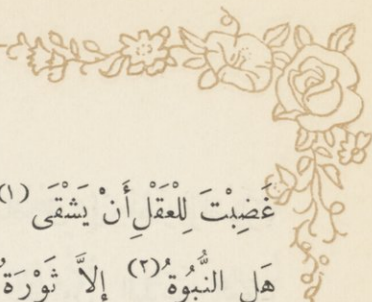 غَضِبْتَ لِلْعَقْلِ أَنْ يَشْقَى (١)
هَلِ النُّبُوةُ (٢) إِلاَّ ثَوْرَةٌ